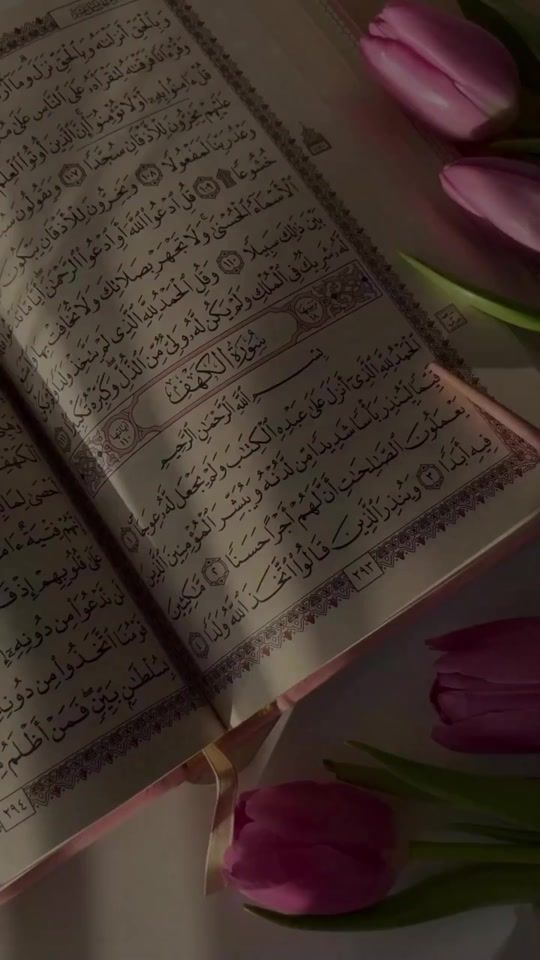 وَبِالْحَقِّ أَنزَلْنَاهُ وَبِالْحَقِّ نَزَلَ وَمَا
وَقُرْءَانًا فَرَقْنَاهُ لِتَقْرَأَهُ عَلَى النَّاسِ عَلَى
قُلْ ءَامِنُوا بِهِ أَوْ لَا تُؤْمِنُوا إِنَّ الَّذِينَ أُوتُوا الْعِلْمَ
عَلَيْهِمْ يَخِرُّونَ لِلْأَذْقَانِ سُجَّدًا ١٠٧ وَيَقُولُونَ
وَعْدُ رَبِّنَا لَمَفْعُولًا ١٠٨ وَيَخِرُّونَ لِلْأَذْقَانِ يَبْكُونَ
خُشُوعًا ۩ ١٠٩ قُلِ ادْعُوا اللَّهَ أَوِ ادْعُوا الرَّحْمَٰنَ أَيًّا مَّا
الْأَسْمَاءُ الْحُسْنَىٰ وَلَا تَجْهَرْ بِصَلَاتِكَ وَلَا تُخَافِتْ بِهَا
بَيْنَ ذَٰلِكَ سَبِيلًا ١١٠ وَقُلِ الْحَمْدُ لِلَّهِ الَّذِي لَمْ يَتَّخِذْ وَلَدًا
لَّهُ شَرِيكٌ فِي الْمُلْكِ وَلَمْ يَكُن لَّهُ وَلِيٌّ مِّنَ الذُّلِّ وَكَبِّرْهُ تَكْبِيرًا
سُورَةُ الْكَهْفِ
بِسْمِ اللَّهِ الرَّحْمَٰنِ الرَّحِيمِ
الْحَمْدُ لِلَّهِ الَّذِي أَنزَلَ عَلَىٰ عَبْدِهِ الْكِتَابَ وَلَمْ يَجْعَل لَّهُ عِوَجًا ١
قَيِّمًا لِّيُنذِرَ بَأْسًا شَدِيدًا مِّن لَّدُنْهُ وَيُبَشِّرَ الْمُؤْمِنِينَ الَّذِينَ
يَعْمَلُونَ الصَّالِحَاتِ أَنَّ لَهُمْ أَجْرًا حَسَنًا ٢ مَّاكِثِينَ
فِيهِ أَبَدًا ٣ وَيُنذِرَ الَّذِينَ قَالُوا اتَّخَذَ اللَّهُ وَلَدًا ٤
٢٩٣
عَلَىٰ قُلُوبِهِمْ إِذْ
لَن نَّدْعُوَا مِن دُونِهِ
قَوْمُنَا اتَّخَذُوا مِن دُونِهِ
بِسُلْطَانٍ بَيِّنٍ فَمَنْ أَظْلَمُ
٢٩٤